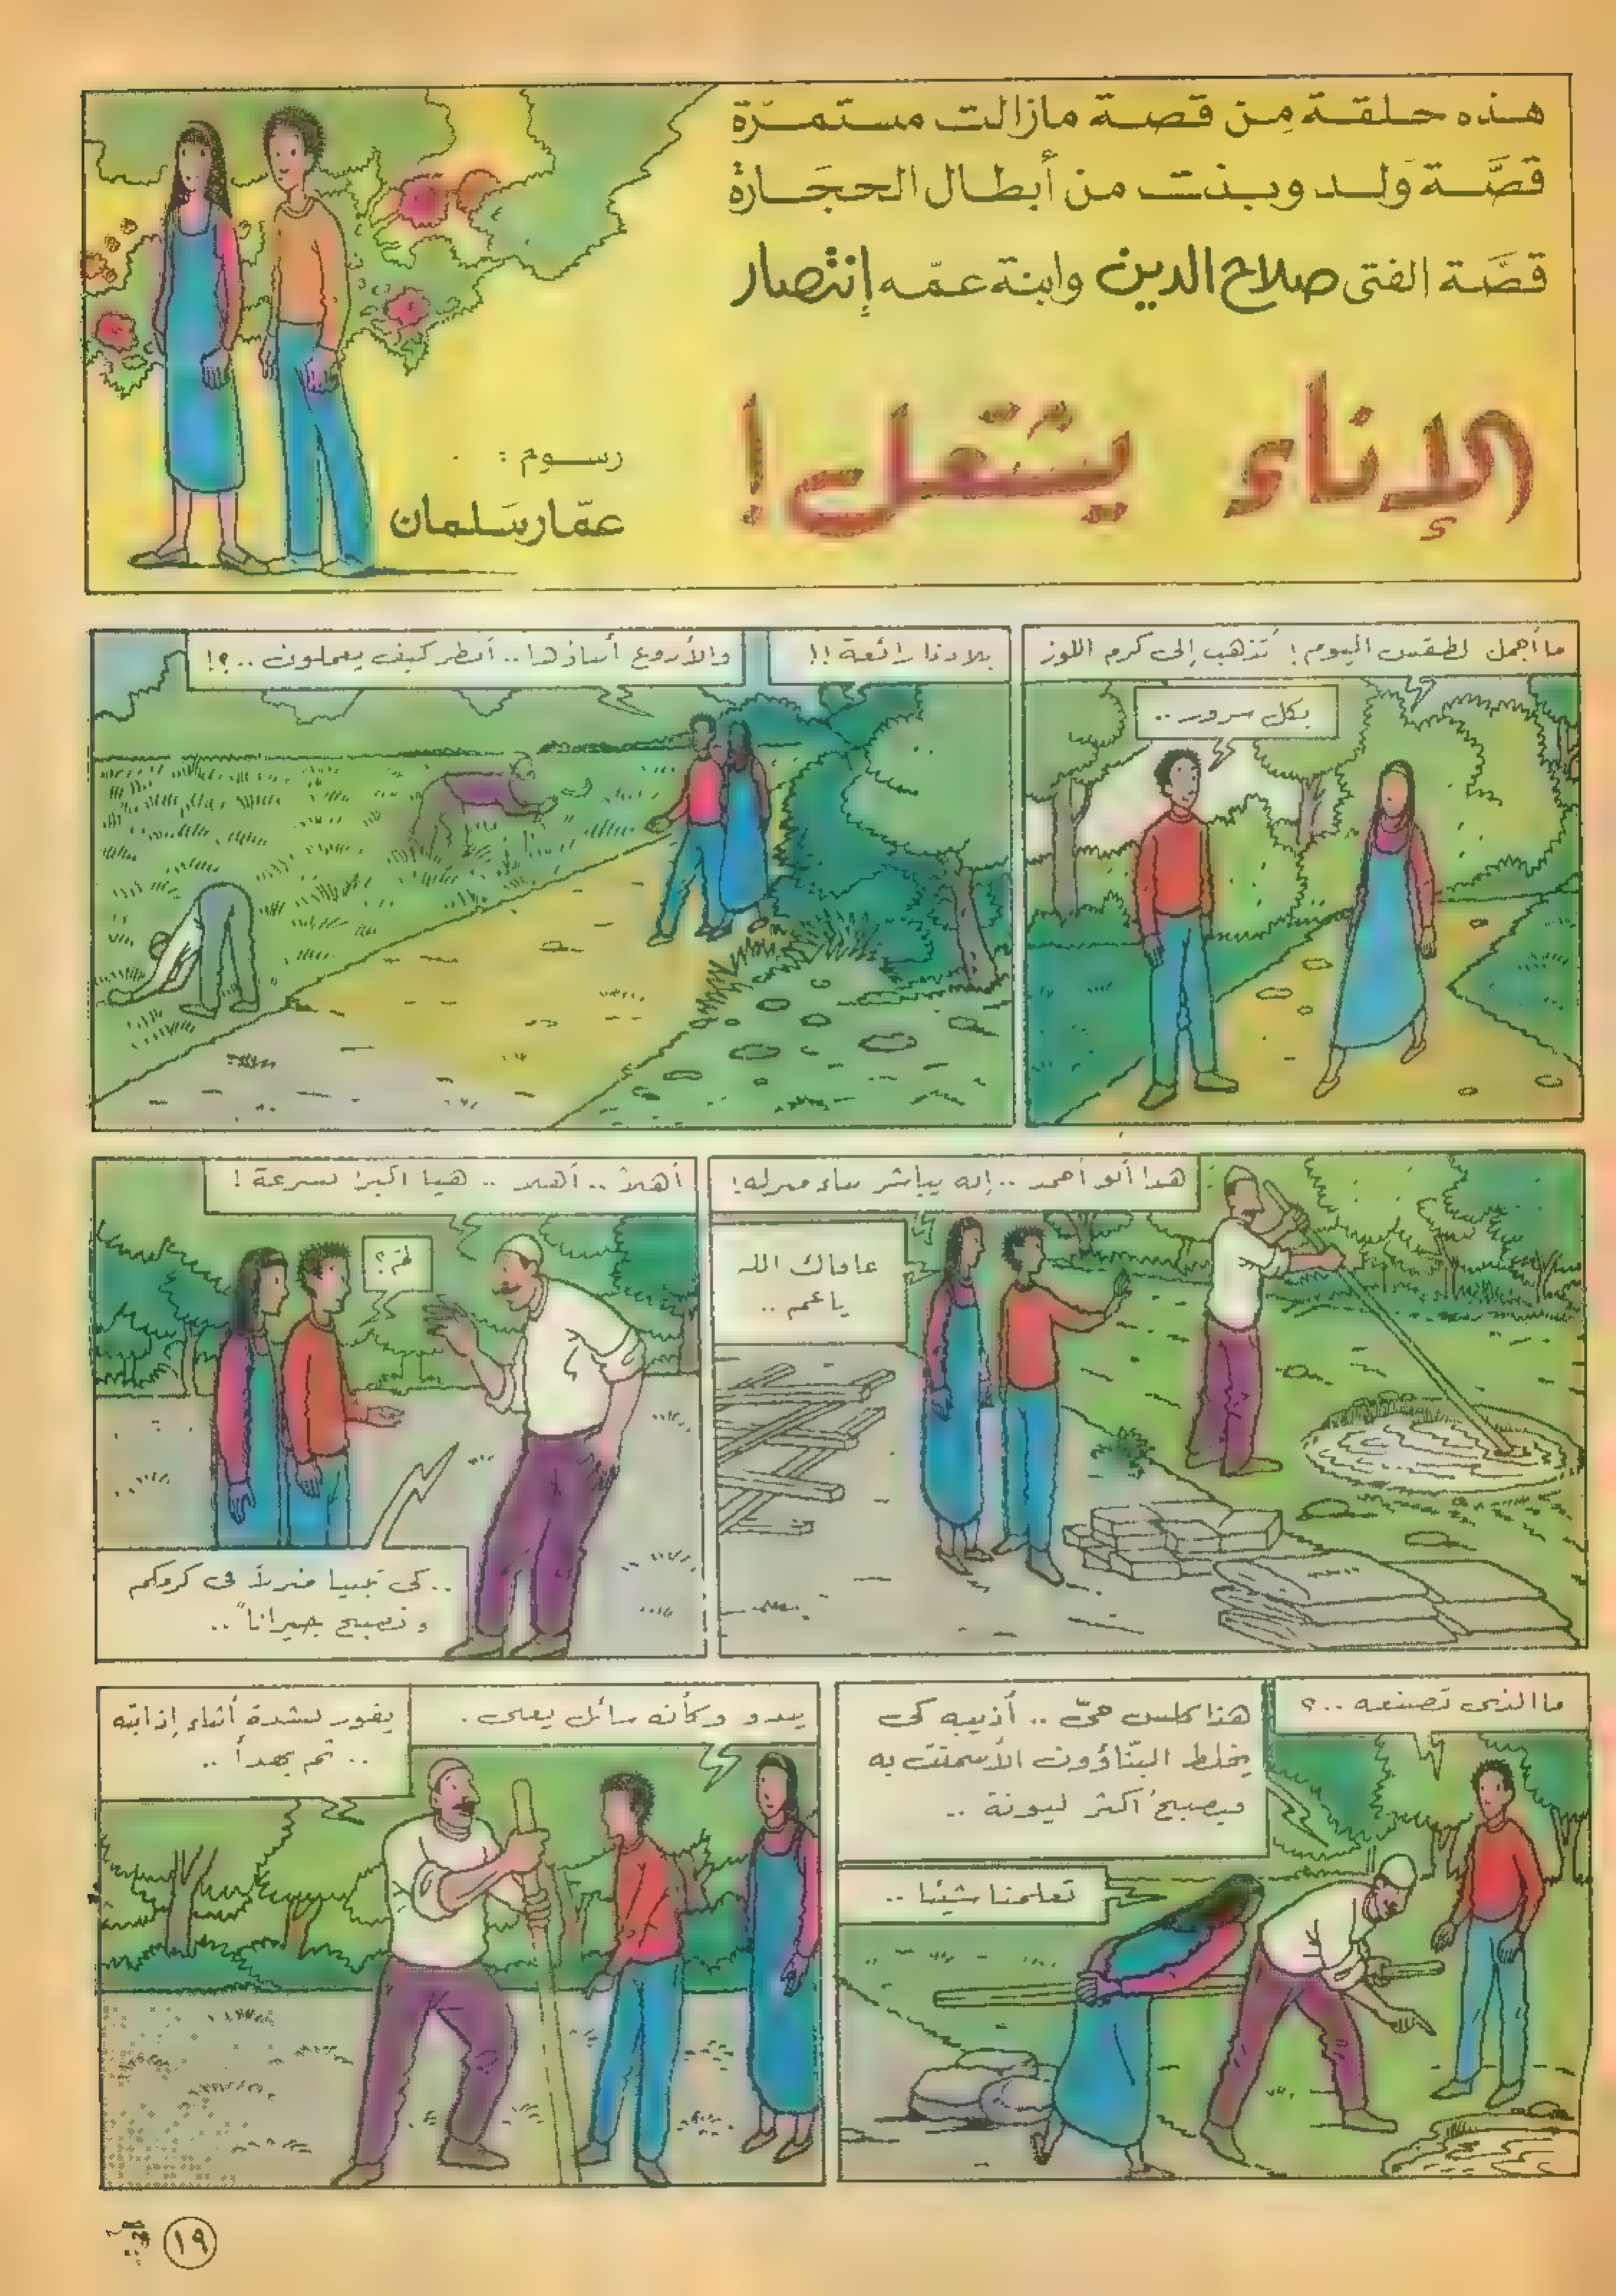 هذه حلقة مِن قصة مازالت مستمرّة
قصَّة وَلد وبنت من أبطال الحجَارة
قصَّة الفتى صلاح الدين وابنة عمّه إنتصار
الإناء يشتعل!
رسوم :
عمّار سَلمان
ما أجمل الطقس اليوم! أتذهب إلى كرم اللوز
بكل سرور ..
بلادنا رائعة !!
والأروع أساذها .. أنظر كيف يعملون ..؟!
هذا أبو أحمد .. إنه يباشر بناء منزله!
عافاك الله
يا عم ..
أهلاً .. أهلاً .. هيا اكبرا بسرعة !
لِمَ؟
.. كي تبنيا منزلاً في كرومكم
ونصبح جيراناً ..
ما الذي تصنعه ..؟
هذا كلس حيّ .. أذيبه كي
يخلط البنّاؤون الأسمنت به
فيصبحُ أكثر ليونة ..
تعلمنا شيئاً ..
يبدو وكأنه سائل يغلي .
يفور بشدة أثناء إذابته
.. ثم يهدأ ..
١٩